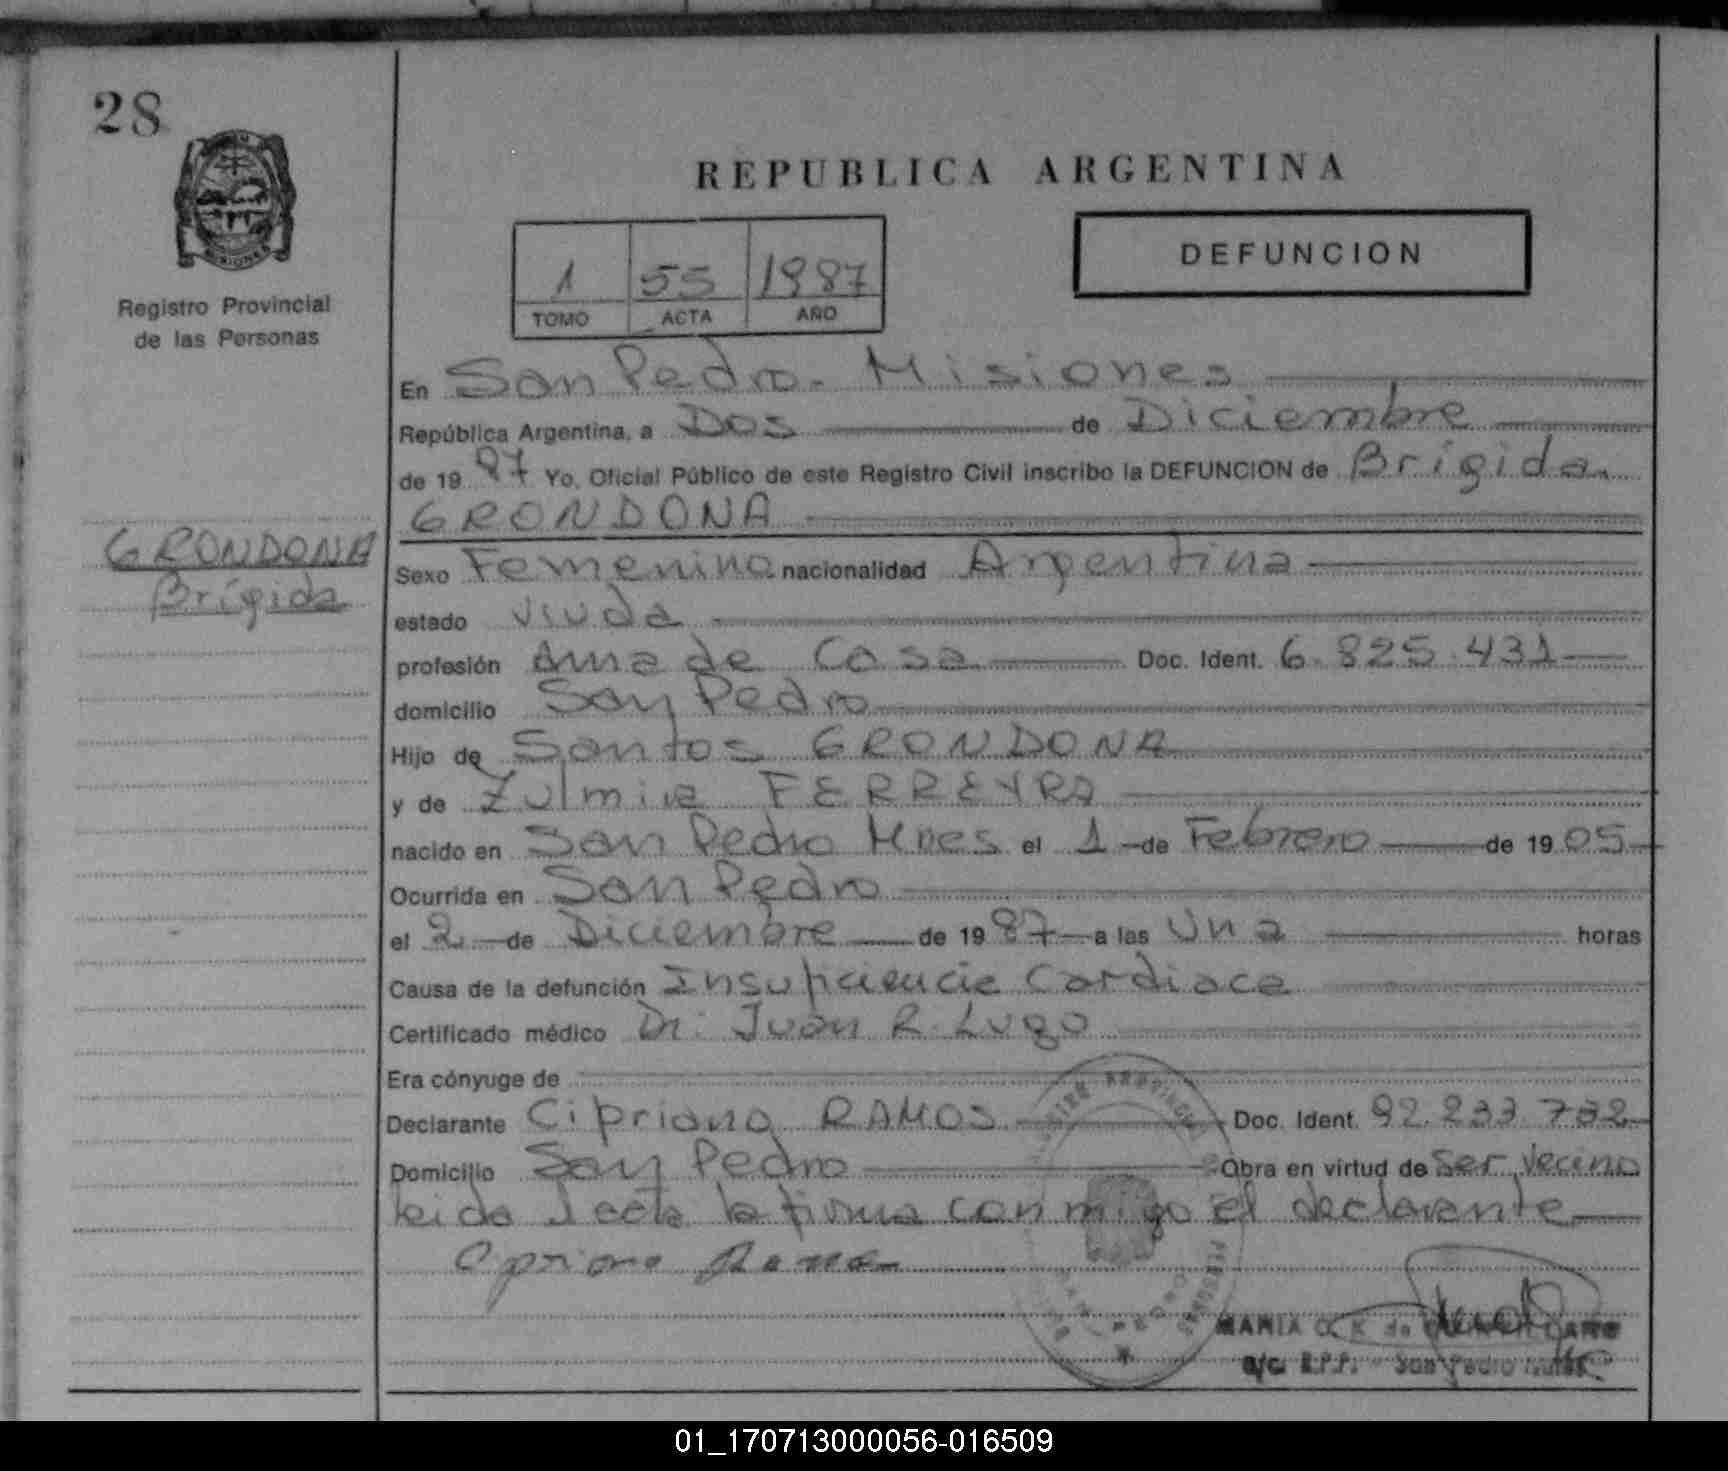 28
MISIONES
Registro Provincial
de las Personas
REPUBLICA ARGENTINA
1 55 1987
TOMO ACTA AÑO
DEFUNCION
En San Pedro - Misiones
República Argentina, a Dos de Diciembre
de 19 87 Yo, Oficial Público de este Registro Civil inscribo la DEFUNCION de Brígida
GRONDONA
GRONDONA
Brígida
Sexo Femenino nacionalidad Argentina
estado viuda
profesión Ama de Casa Doc. Ident. 6.825.431
domicilio San Pedro
Hijo de Santos GRONDONA
y de Zulmira FERREYRA
nacido en San Pedro Mnes el 1 de Febrero de 19 05
Ocurrida en San Pedro
el 2 de Diciembre de 19 87 a las Una horas
Causa de la defunción Insuficiencia Cardiaca
Certificado médico Dr. Juan R. Lugo
Era cónyuge de
Declarante Cipriano RAMOS Doc. Ident. 92.233.732
Domicilio San Pedro Obra en virtud de ser vecino
leida el acta la firma conmigo el declarante
Cipriano Ramos
MARIA
a/c. R.P.P. - San Pedro Mnes.
01_170713000056-016509